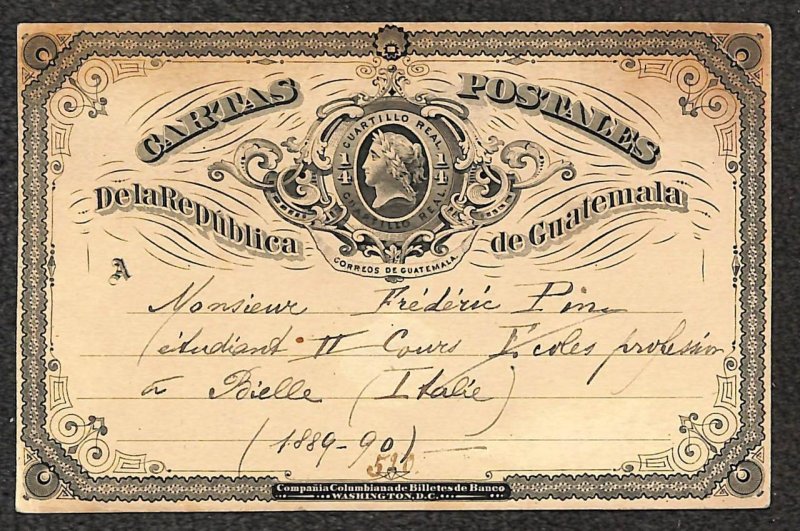 CARTAS POSTALES
CUARTILLO REAL
1/4 1/4
CUARTILLO REAL
De la República de Guatemala
CORREOS DE GUATEMALA.
A
Monsieur Frédéric Pin
étudiant II Cours Écoles profession
a Bielle (Italie)
(1889-90)
530
Compañia Columbiana de Billetes de Banco
WASHINGTON, D.C.